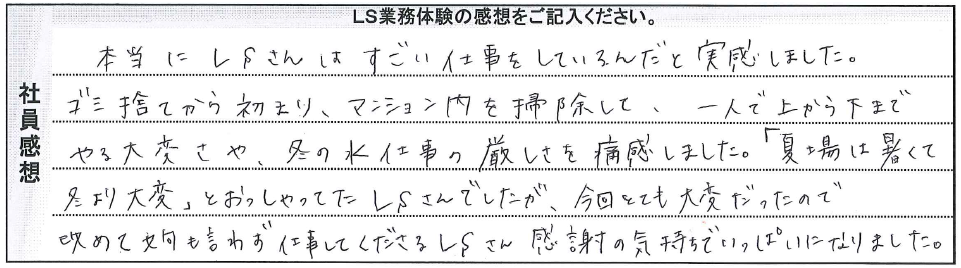 LS業務体験の感想をご記入ください。
社員感想
本当にLSさんはすごい仕事をしているんだと実感しました。
ゴミ捨てから初まり、マンション内を掃除して、一人で上から下まで
やる大変さや、冬の水仕事の厳しさを痛感しました。「夏場は暑くて
冬より大変」とおっしゃってたLSさんでしたが、今回とても大変だったので
改めて文句も言わず仕事してくださるLSさん感謝の気持ちでいっぱいになりました。